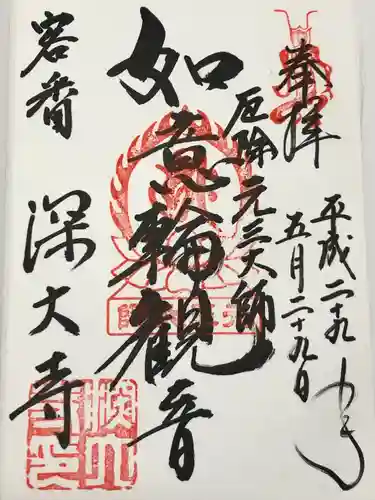 奉拝
平成二十九年
五月二十九日
厄除元三大師
如意輪観音
深大寺